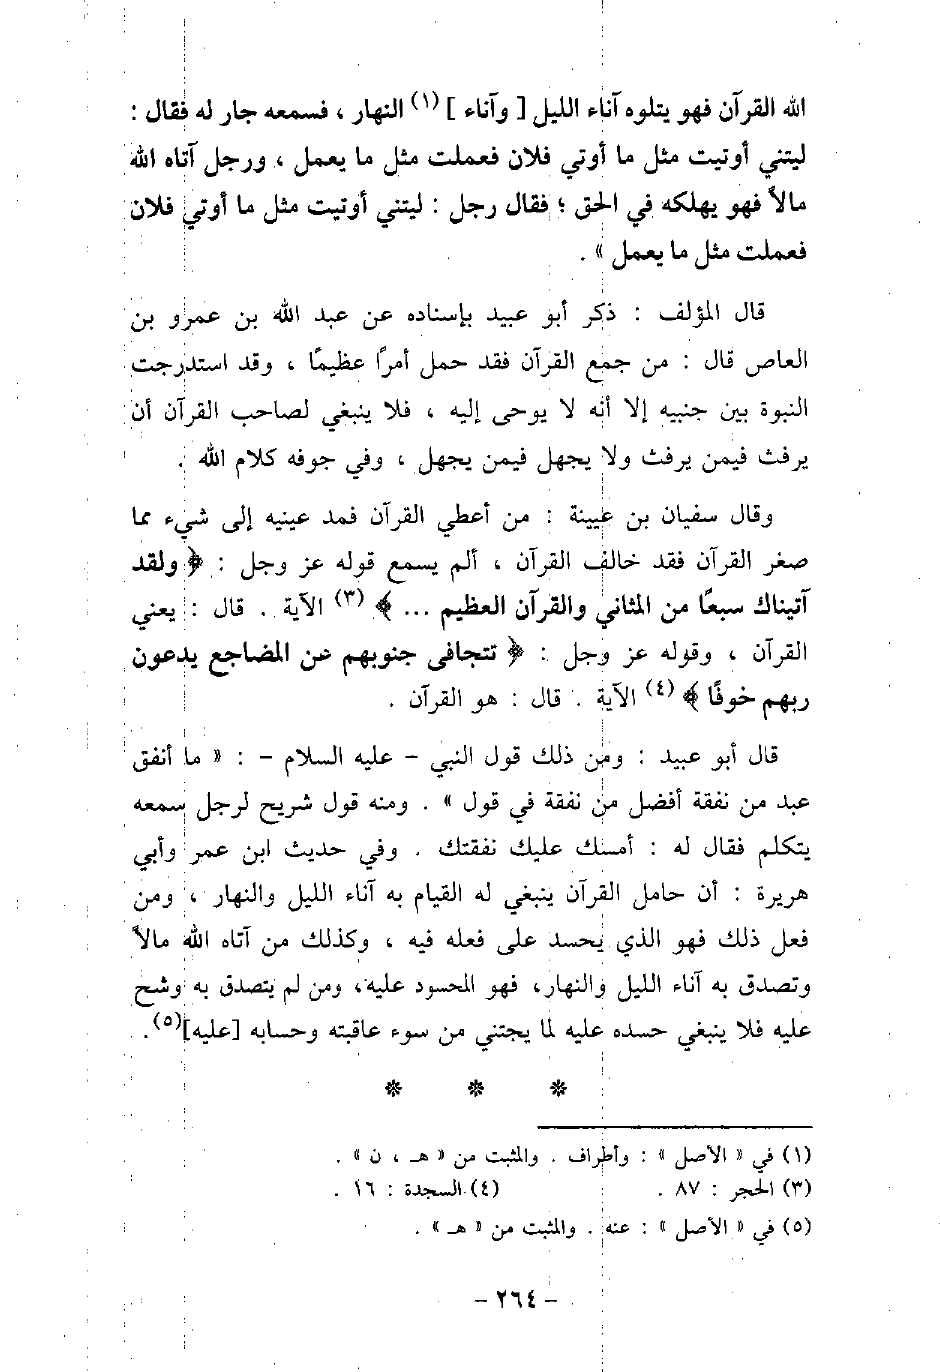 الله القرآن فهو يتلوه آناء الليل [ وآناء ] (١) النهار ، فسمعه جار له فقال :
ليتني أوتيت مثل ما أوتي فلان فعملت مثل ما يعمل ، ورجل آتاه الله
مالاً فهو يهلكه في الحق ؛ فقال رجل : ليتني أوتيت مثل ما أوتي فلان
فعملت مثل ما يعمل » .
قال المؤلف : ذكر أبو عبيد بإسناده عن عبد الله بن عمرو بن
العاص قال : من جمع القرآن فقد حمل أمرًا عظيمًا ، وقد استدرجت
النبوة بين جنبيه إلا أنه لا يوحى إليه ، فلا ينبغي لصاحب القرآن أن
يرفث فيمن يرفث ولا يجهل فيمن يجهل ، وفي جوفه كلام الله .
وقال سفيان بن عيينة : من أعطي القرآن فمد عينيه إلى شيء مما
صغر القرآن فقد خالف القرآن ، ألم يسمع قوله عز وجل : ﴿ ولقد
آتيناك سبعًا من المثاني والقرآن العظيم ... ﴾ (٣) الآية . قال : يعني
القرآن ، وقوله عز وجل : ﴿ تتجافى جنوبهم عن المضاجع يدعون
ربهم خوفًا ﴾ (٤) الآية . قال : هو القرآن .
قال أبو عبيد : ومن ذلك قول النبي – عليه السلام – : « ما أنفق
عبد من نفقة أفضل من نفقة في قول » . ومنه قول شريح لرجل سمعه
يتكلم فقال له : أمسك عليك نفقتك . وفي حديث ابن عمر وأبي
هريرة : أن حامل القرآن ينبغي له القيام به آناء الليل والنهار ، ومن
فعل ذلك فهو الذي يحسد على فعله فيه ، وكذلك من آتاه الله مالاً
وتصدق به آناء الليل والنهار، فهو المحسود عليه، ومن لم يتصدق به وشح
عليه فلا ينبغي حسده عليه لما يجتني من سوء عاقبته وحسابه [عليه](٥).
❊ ❊ ❊
(١) في « الأصل » : وأطراف . والمثبت من « هـ ، ن » .
(٣) الحجر : ٨٧ . (٤) السجدة : ١٦ .
(٥) في « الأصل » : عنه . والمثبت من « هـ » .
– ٢٦٤ –